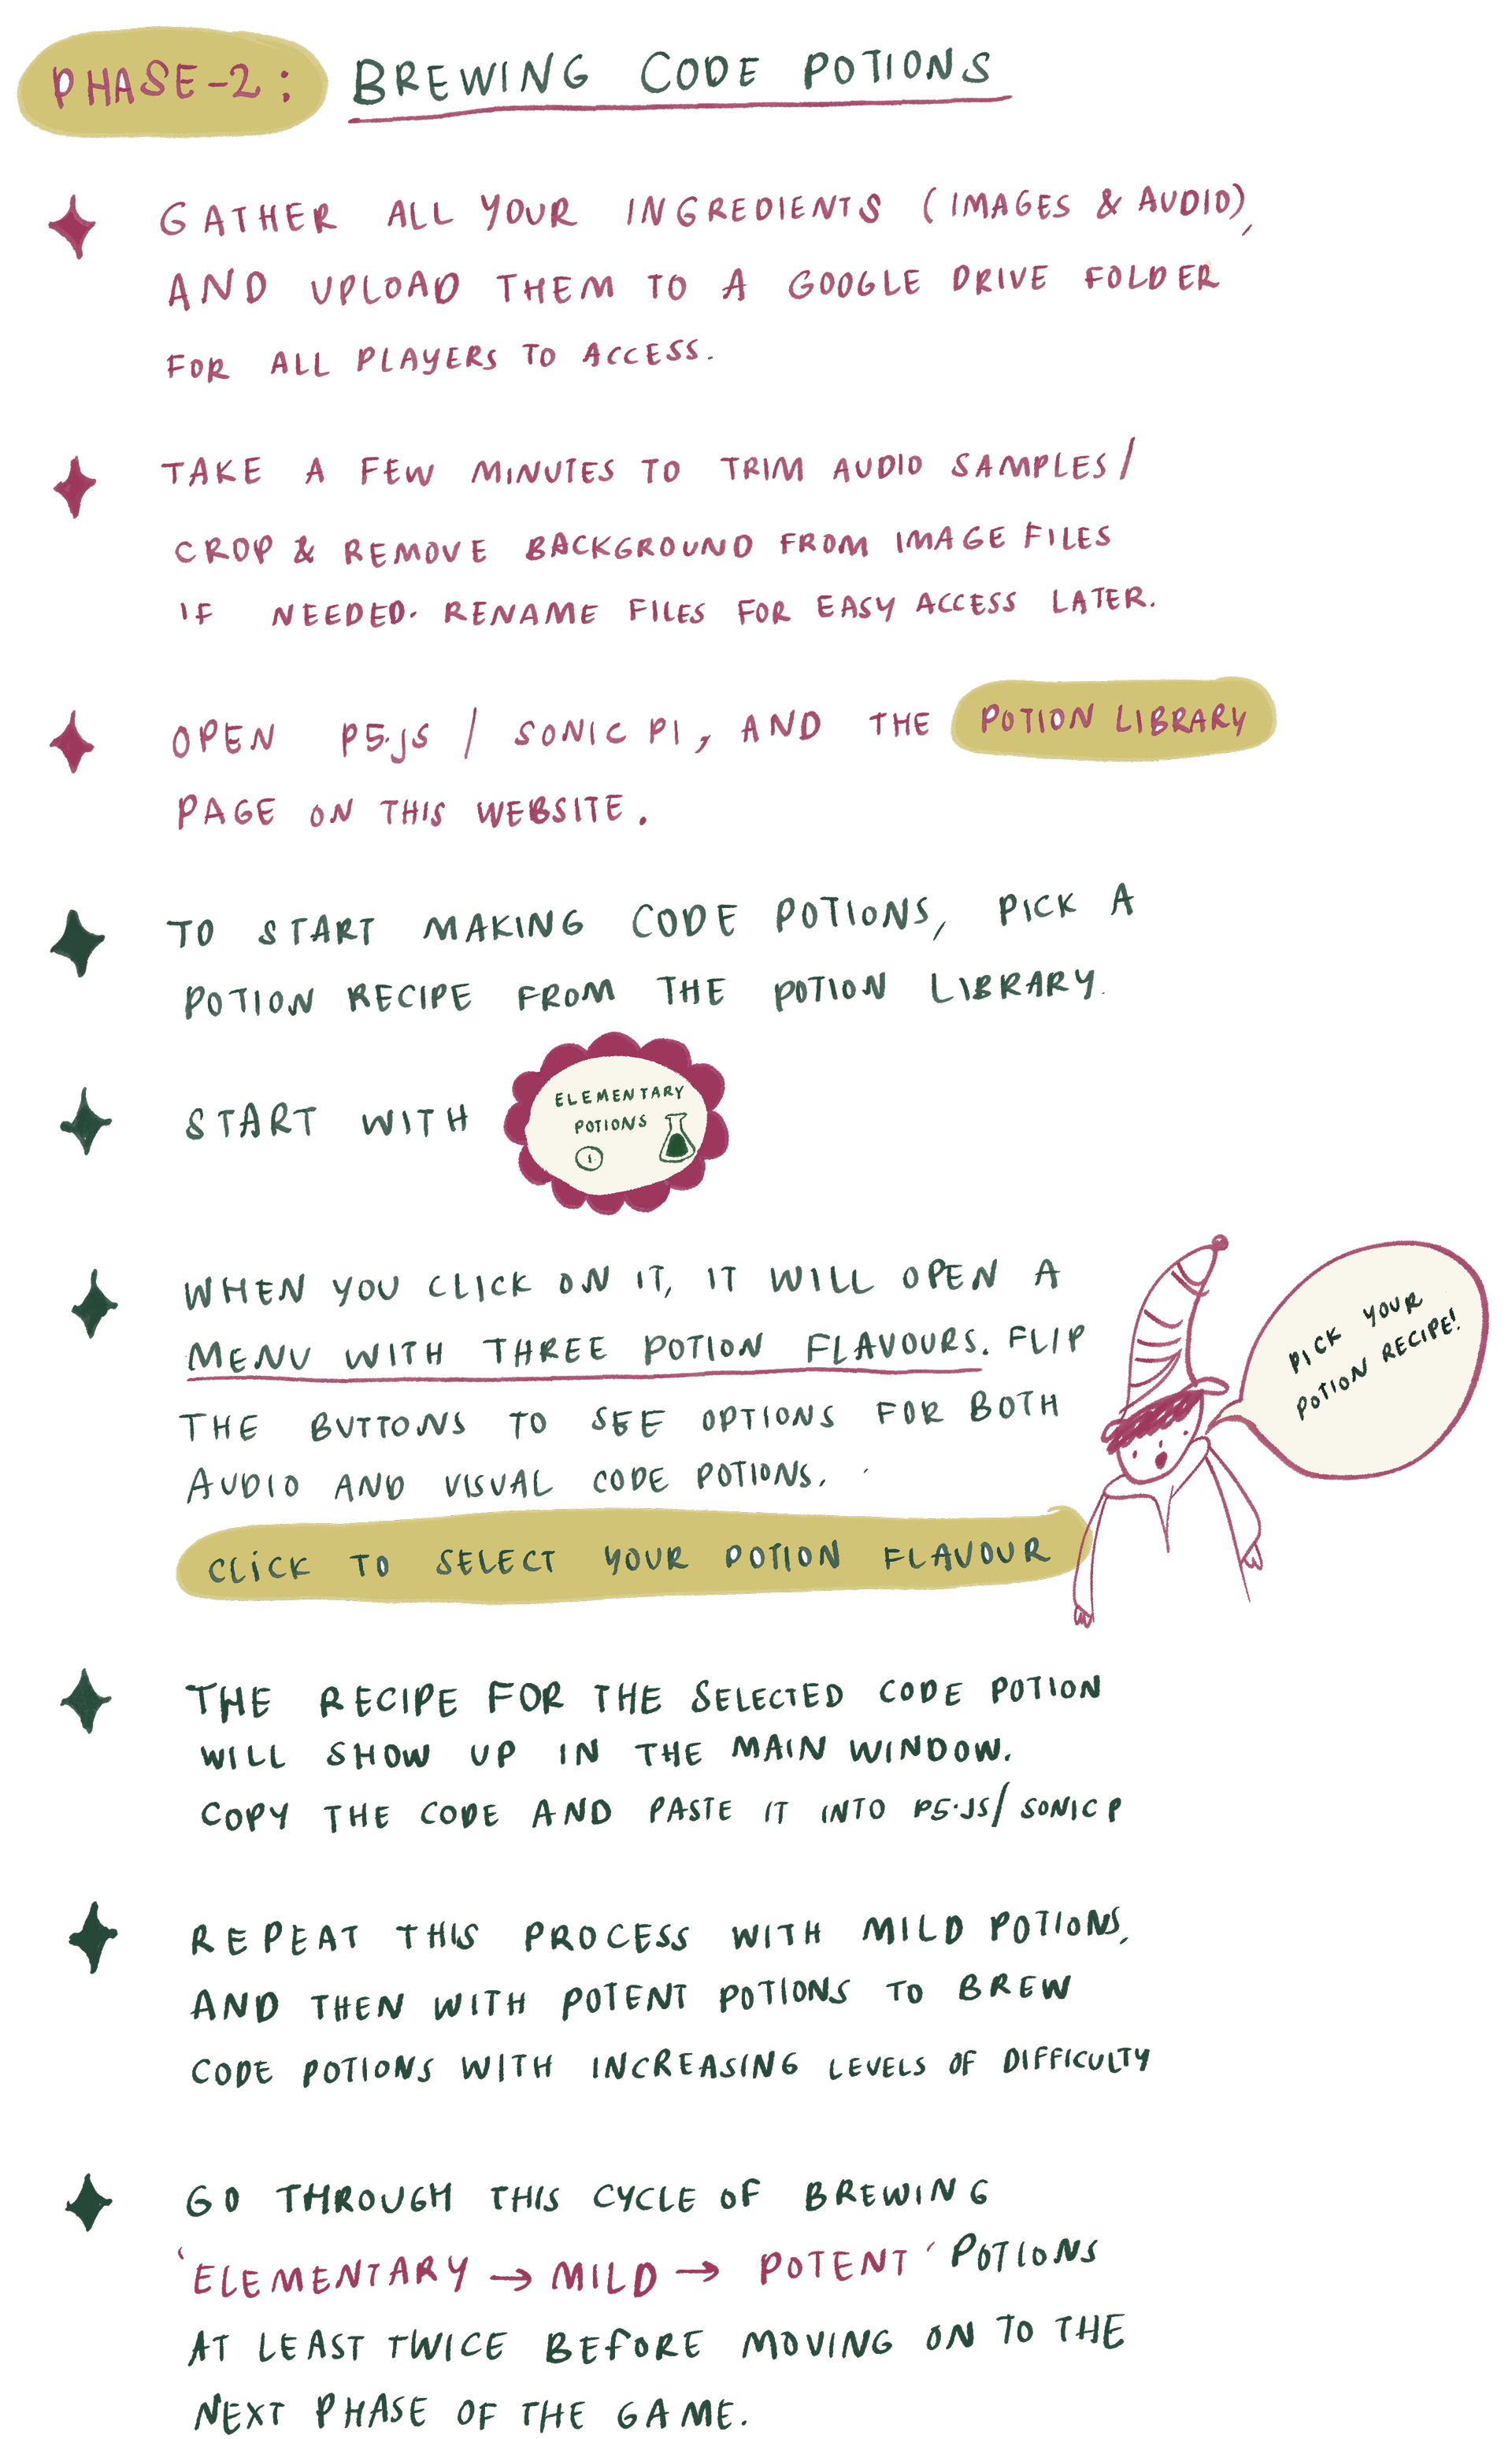 PHASE-2: BREWING CODE POTIONS
GATHER ALL YOUR INGREDIENTS (IMAGES & AUDIO),
AND UPLOAD THEM TO A GOOGLE DRIVE FOLDER
FOR ALL PLAYERS TO ACCESS.
TAKE A FEW MINUTES TO TRIM AUDIO SAMPLES/
CROP & REMOVE BACKGROUND FROM IMAGE FILES
IF NEEDED. RENAME FILES FOR EASY ACCESS LATER.
OPEN P5.js / SONIC PI, AND THE POTION LIBRARY
PAGE ON THIS WEBSITE.
TO START MAKING CODE POTIONS, PICK A
POTION RECIPE FROM THE POTION LIBRARY.
START WITH
ELEMENTARY
POTIONS
1.
WHEN YOU CLICK ON IT, IT WILL OPEN A
MENU WITH THREE POTION FLAVOURS. FLIP
THE BUTTONS TO SEE OPTIONS FOR BOTH
AUDIO AND VISUAL CODE POTIONS.
CLiCK TO SELECT YOUR POTION FLAVOUR
PICK YOUR
POTION RECIPE!
THE RECIPE FOR THE SELECTED CODE POTION
WILL SHOW UP IN THE MAIN WINDOW.
COPY THE CODE AND PASTE IT INTO P5.JS/ SONIC P
REPEAT THIS PROCESS WITH MILD POTIONS,
AND THEN WITH POTENT POTIONS TO BREW
CODE POTIONS WITH INCREASING LEVELS OF DIFFICULTY
GO THROUGH THIS CYCLE OF BREWING
'ELEMENTARY → MILD → POTENT' POTIONS
AT LEAST TWICE BEFORE MOVING ON TO THE
NEXT PHASE OF THE GAME.